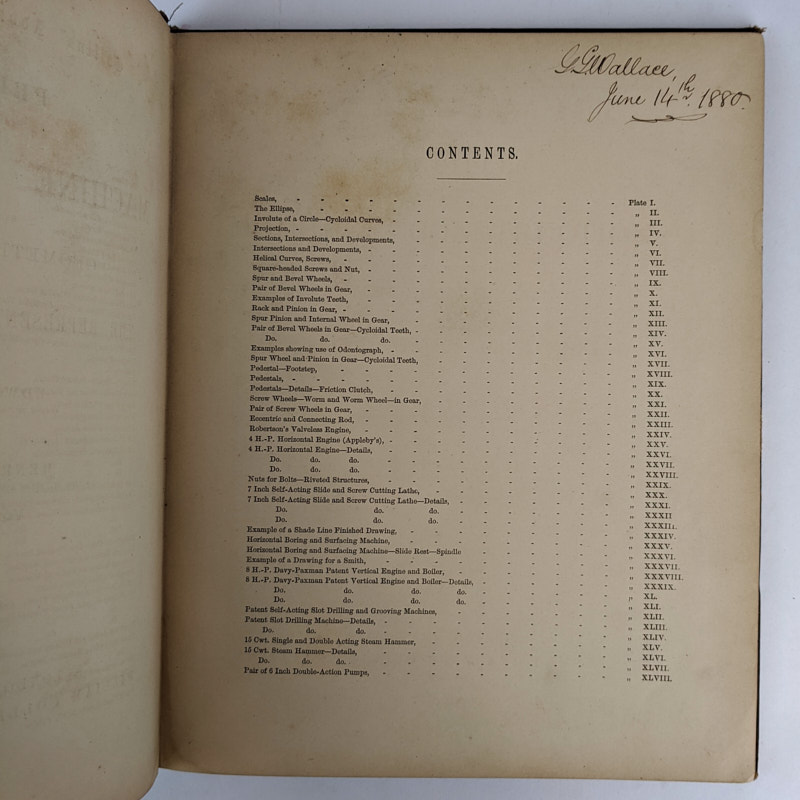 G. G. Wallace,
June 14th 1880.
CONTENTS.
Scales, - - - - - - - - - - - - - - Plate I.
The Ellipse, - - - - - - - - - - - - - „ II.
Involute of a Circle—Cycloidal Curves, - - - - - - - - - - „ III.
Projection, - - - - - - - - - - - - - - „ IV.
Sections, Intersections, and Developments, - - - - - - - - - „ V.
Intersections and Developments, - - - - - - - - - - - „ VI.
Helical Curves, Screws, - - - - - - - - - - - - „ VII.
Square-headed Screws and Nut, - - - - - - - - - - - „ VIII.
Spur and Bevel Wheels, - - - - - - - - - - - - „ IX.
Pair of Bevel Wheels in Gear, - - - - - - - - - - - „ X.
Examples of Involute Teeth, - - - - - - - - - - - „ XI.
Rack and Pinion in Gear, - - - - - - - - - - - - „ XII.
Spur Pinion and Internal Wheel in Gear, - - - - - - - - - „ XIII.
Pair of Bevel Wheels in Gear—Cycloidal Teeth, - - - - - - - - - „ XIV.
Do. do. do. - - - - - - - - - „ XV.
Examples showing use of Odontograph, - - - - - - - - - - „ XVI.
Spur Wheel and Pinion in Gear—Cycloidal Teeth, - - - - - - - - „ XVII.
Pedestal—Footstep, - - - - - - - - - - - - „ XVIII.
Pedestals, - - - - - - - - - - - - - - „ XIX.
Pedestals—Details—Friction Clutch, - - - - - - - - - - „ XX.
Screw Wheels—Worm and Worm Wheel—in Gear, - - - - - - - - „ XXI.
Pair of Screw Wheels in Gear, - - - - - - - - - - - „ XXII.
Eccentric and Connecting Rod, - - - - - - - - - - - „ XXIII.
Robertson's Valveless Engine, - - - - - - - - - - - „ XXIV.
4 H.-P. Horizontal Engine (Appleby's), - - - - - - - - - - „ XXV.
4 H.-P. Horizontal Engine—Details, - - - - - - - - - - „ XXVI.
Do. do. do. - - - - - - - - - - „ XXVII.
Do. do. do. - - - - - - - - - - „ XXVIII.
Nuts for Bolts—Riveted Structures, - - - - - - - - - - „ XXIX.
7 Inch Self-Acting Slide and Screw Cutting Lathe, - - - - - - - - „ XXX.
7 Inch Self-Acting Slide and Screw Cutting Lathe—Details, - - - - - - - „ XXXI.
Do. do. do. - - - - - - - „ XXXII
Do. do. do. - - - - - - - „ XXXIII.
Example of a Shade Line Finished Drawing, - - - - - - - - - „ XXXIV.
Horizontal Boring and Surfacing Machine, - - - - - - - - - „ XXXV.
Horizontal Boring and Surfacing Machine—Slide Rest—Spindle - - - - - - „ XXXVI.
Example of a Drawing for a Smith, - - - - - - - - - - „ XXXVII.
8 H.-P. Davy-Paxman Patent Vertical Engine and Boiler, - - - - - - - „ XXXVIII.
8 H.-P. Davy-Paxman Patent Vertical Engine and Boiler—Details, - - - - - - „ XXXIX.
Do. do. do. do. - - - - - - „ XL.
Do. do. do. do. - - - - - - „ XLI.
Patent Self-Acting Slot Drilling and Grooving Machines, - - - - - - - „ XLII.
Patent Slot Drilling Machine—Details, - - - - - - - - - - „ XLIII.
Do. do. do. - - - - - - - - - - „ XLIV.
15 Cwt. Single and Double Acting Steam Hammer, - - - - - - - - „ XLV.
15 Cwt. Steam Hammer—Details, - - - - - - - - - - „ XLVI.
Do. do. do. - - - - - - - - - - „ XLVII.
Pair of 6 Inch Double-Action Pumps, - - - - - - - - - - „ XLVIII.